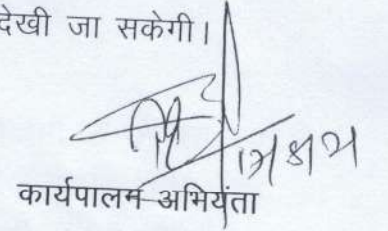 देखी जा सकेगी।
कार्यपालन अभियंता